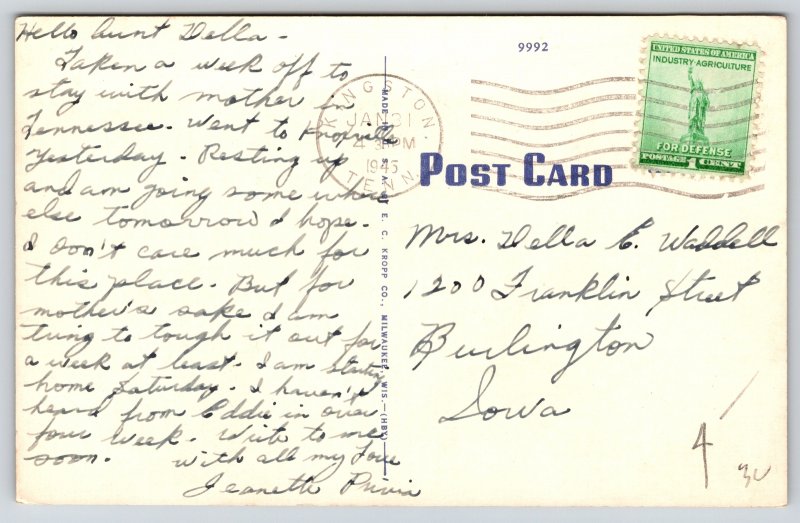 Hello Aunt Della -
Taken a week off to
stay with mother in
Tennessee. Went to Knoxville
yesterday. Resting up
and am going some where
else tomorrow I hope.
I don't care much for
this place. But for
mother's sake I am
trying to tough it out for
a week at least. I am starting
home Saturday. I haven't
heard from Eddie in over
four week. Write to me
soon. with all my Love
Jeanette
MADE E. C. KROPP CO., MILWAUKEE, WIS.—(HBX)
9992
KINGSTON.
JAN 31
4 PM
1945
TENN.
UNITED STATES OF AMERICA
INDUSTRY·AGRICULTURE
FOR DEFENSE
POSTAGE 1 CENT
POST CARD
Mrs. Della E. Waddell
1200 Franklin Street
Burlington
Iowa
4